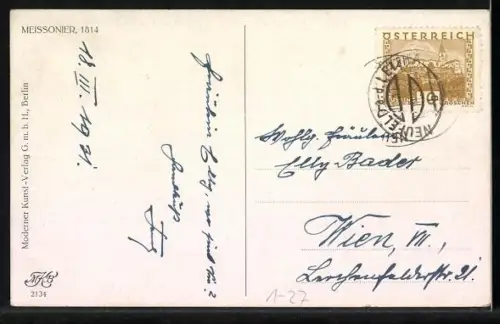 MEISSONIER, 1814
18. III. 1931.
Moderner Kunst-Verlag G. m. b. H., Berlin
MKB
2134
Fräulein Elly, wo sind Sie?
Handkuß
ÖSTERREICH
GROSCHEN
NEUFELD a.d. LEITHA
Wohlg. Fräulein
Elly Bader
Wien, VII.,
Lerchenfelderstr. 21.
1-27